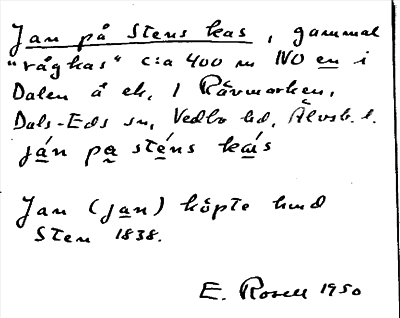 Jan på Stens kas, gammal
"rågkas" c:a 400 m NO en i
Dalen å ek, 1 Rävmarken,
Dals-Eds sn, Vedbo hd, Älvsb. l.
ján pa sténs kás
Jan (jan) köpte hmd
Sten 1838.
E. Rosell 1950